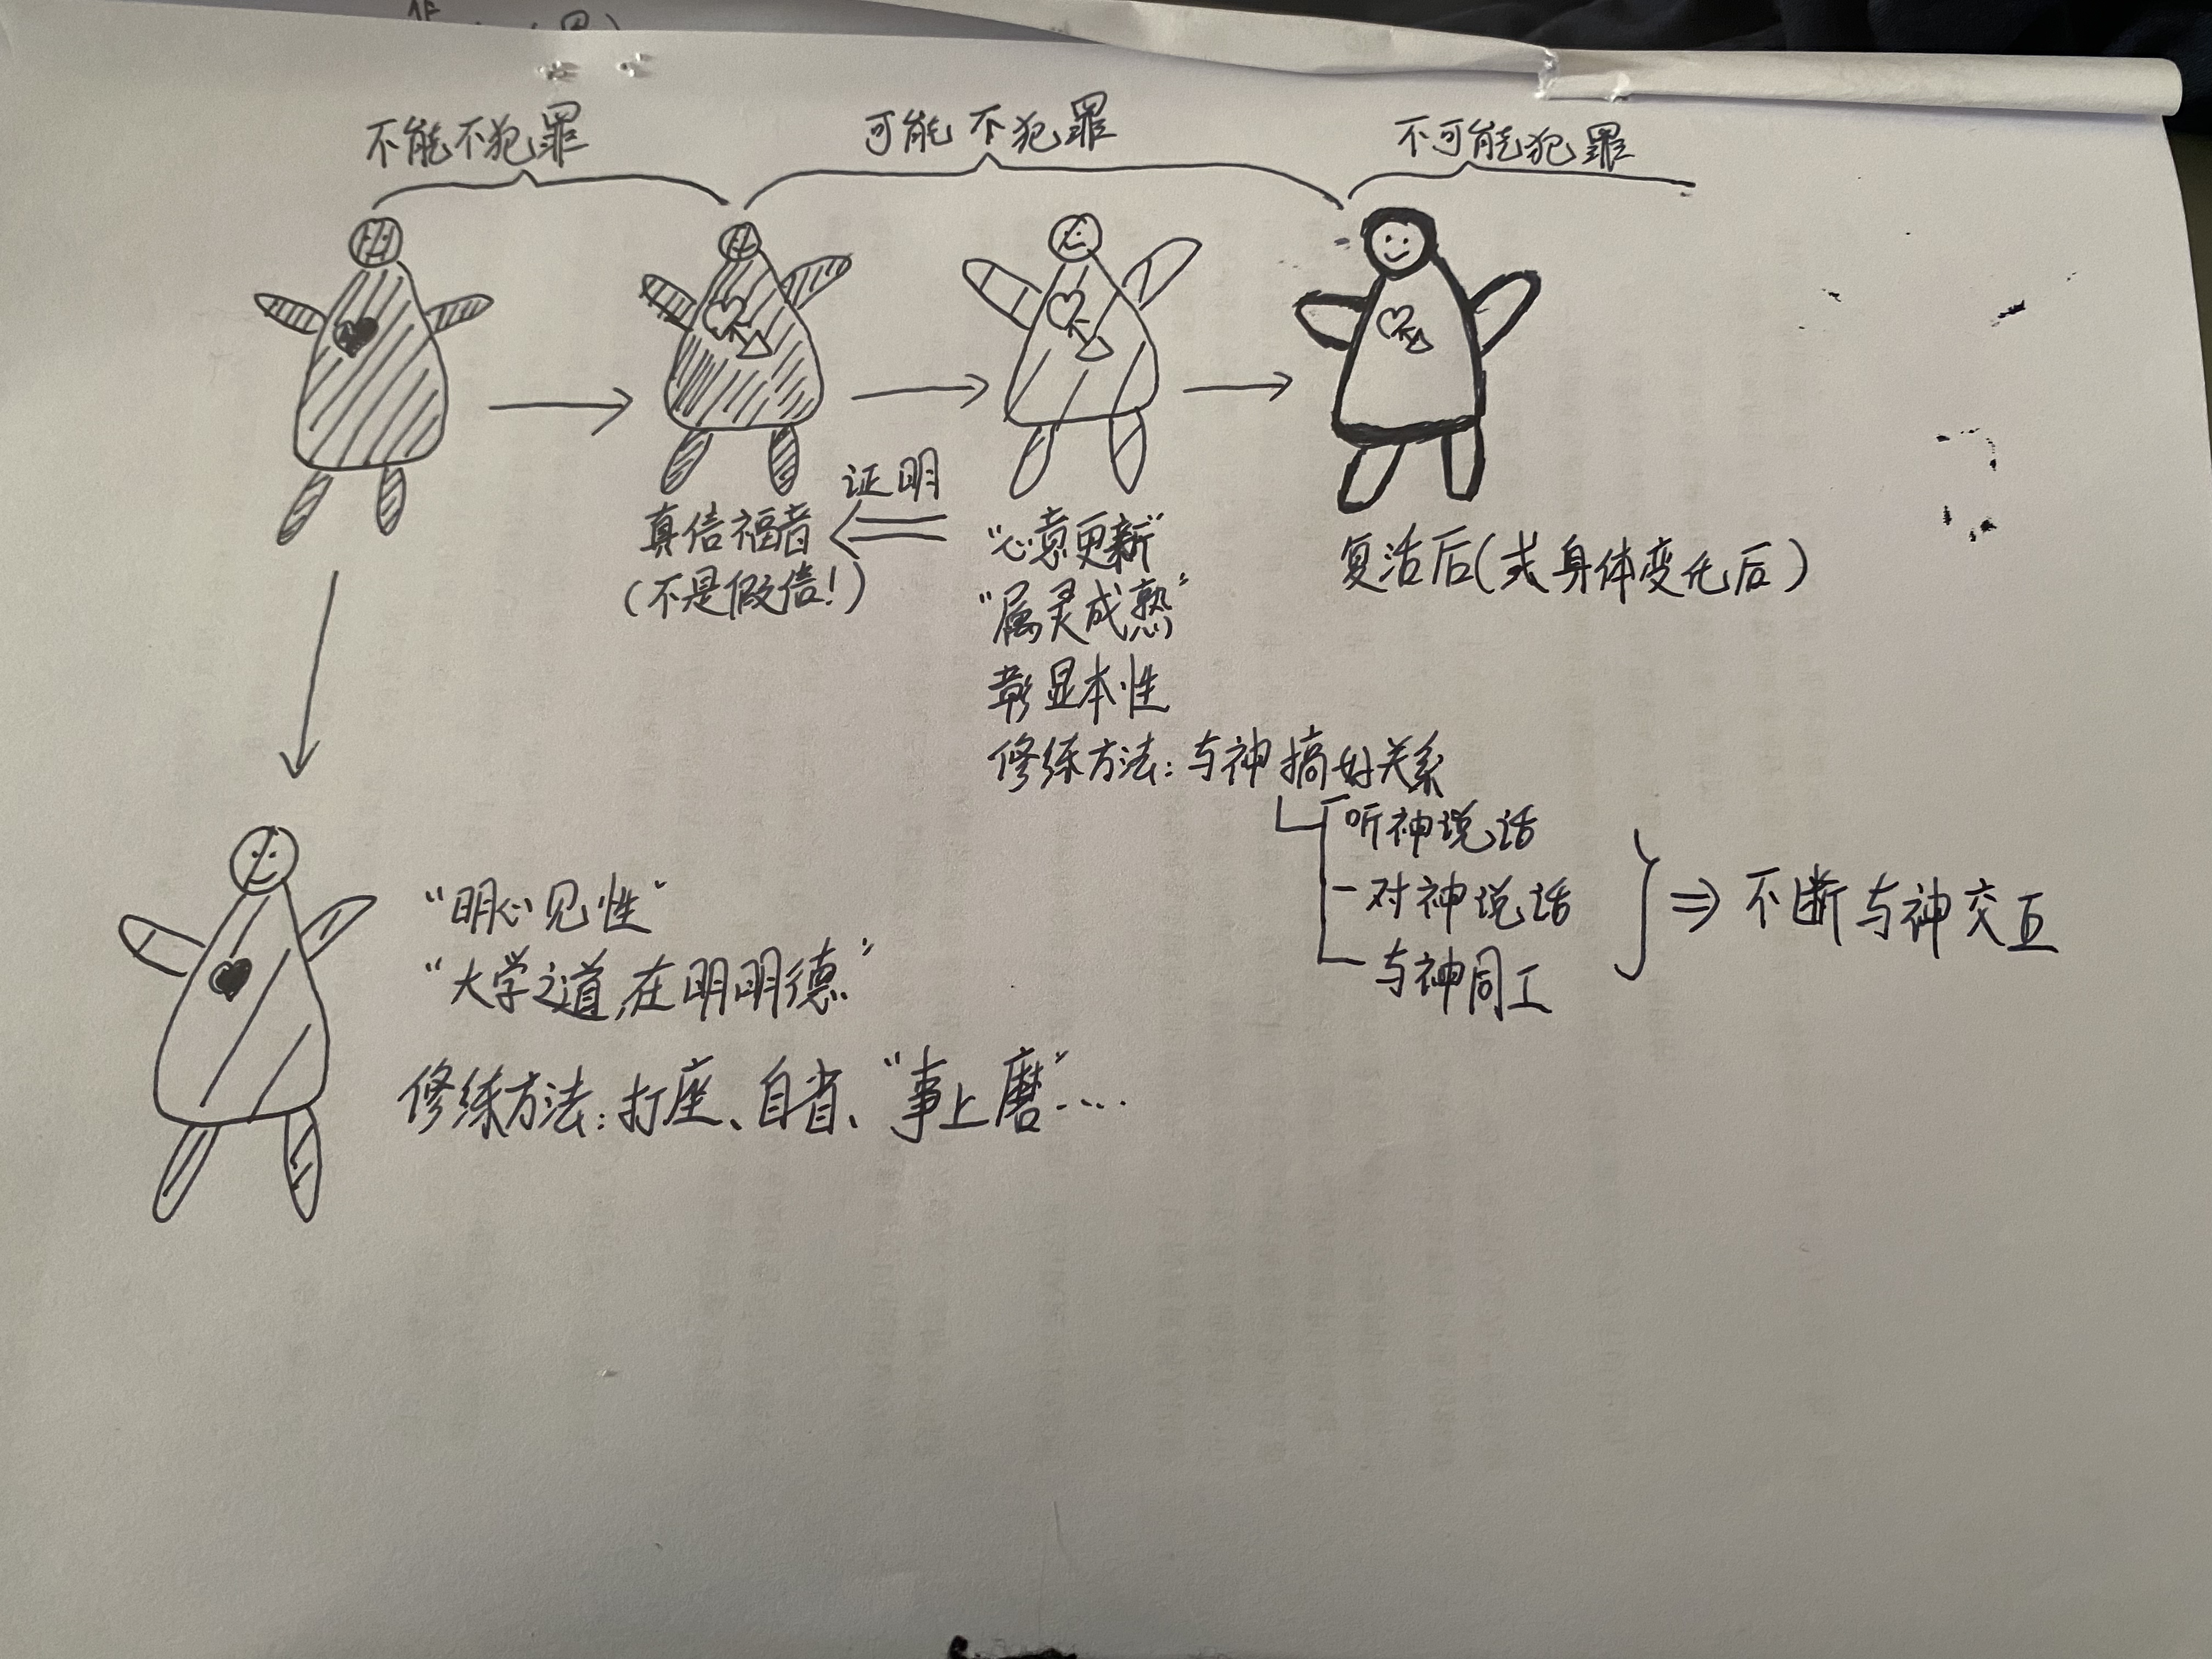 不能不犯罪
可能不犯罪
不可能犯罪
证明
真信福者
(不是假信!)
“心意更新”
“属灵成熟”
彰显本性
修练方法:与神搞好关系
听神说话
对神说话
与神同工
⇒ 不断与神交互
复活后(或身体变化后)
“明心见性”
“大学之道,在明明德”
修练方法:打座、自省、“事上磨”....